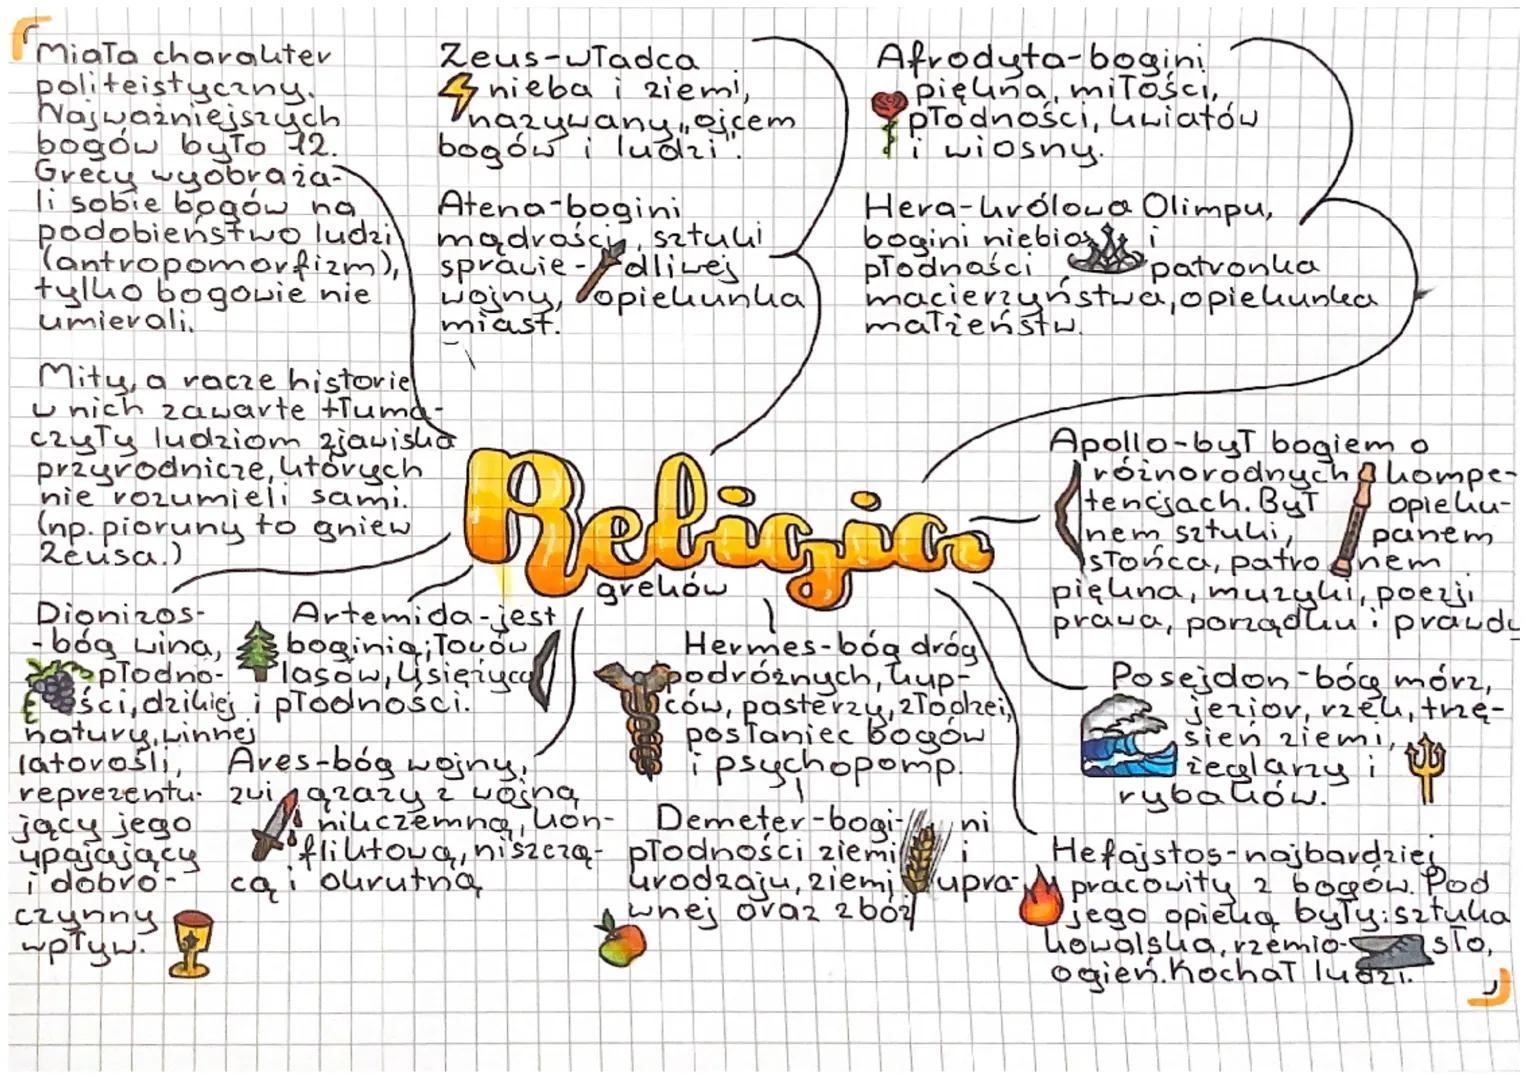 Miała charakter
politeistyczny.
Najważniejszych
bogów było 12.
Grecy wyobraża-
li sobie bogów na
podobieństwo ludzi
(antropomorfizm),
tylko bogowie nie
umierali.
Mity, a racze historie
w nich zawarte tłuma-
czyły ludziom zjawiska
przyrodnicze, których
nie rozumieli sami.
(np. pioruny to gniew
Zeusa.)
Zeus-władca
nieba i ziemi,
nazywany „ojcem
bogów i ludzi".
Atena-bogini
mądrości, sztuki
sprawie-dliwej
wojny, opiekunka
miast.
Afrodyta-bogini
piękna, miłości,
płodności, kwiatów
i wiosny.
Hera-królowa Olimpu,
bogini niebios i
płodności patronka
macierzyństwa, opiekunka
małżeństw.
Religia
greków
Apollo-był bogiem o
różnorodnych kompe-
tencjach. Był opieku-
nem sztuki, panem
słońca, patro nem
piękna, muzyki, poezji
prawa, porządku i prawdy
Dionizos-
-bóg wina,
płodno-
ści, dzikiej
natury, winnej
latorośli,
reprezentu-
jący jego
upajający
i dobro-
czynny
wpływ.
Artemida-jest
boginią; łowów
lasów, księżyca
i płodności.
Ares-bóg wojny,
zwi ązazy z wojną
nikczemną, kon-
fliktową, niszczą-
cą i okrutną
Hermes-bóg dróg
podróżnych, kup-
ców, pasterzy, złodzei,
posłaniec bogów
i psychopomp.
Demeter-bogi- ni
płodności ziemi i
urodzaju, ziemi upra-
wnej oraz zbóż
Posejdon-bóg mórz,
jezior, rzek, trzę-
sień ziemi,
żeglarzy i
rybaków.
Hefajstos-najbardziej
pracowity z bogów. Pod
jego opieką były: sztuka
kowalska, rzemio- sło,
ogień. Kochał ludzi.